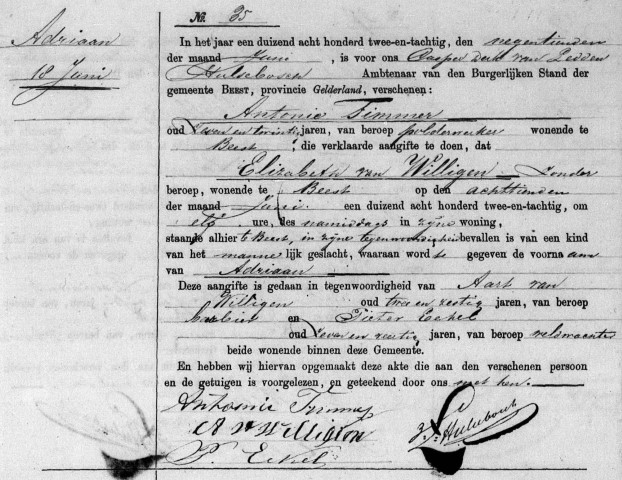 No. 35
Adriaan
18 Juni
In het jaar een duizend acht honderd twee-en-tachtig, den negentienden
der maand Juni, is voor ons Casper Derk van Ledden
Hulsebosch Ambtenaar van den Burgerlijken Stand der
gemeente BEEST, provincie Gelderland, verschenen:
Antonie Timmer
oud en twintig jaren, van beroep polderwerker wonende te
Beest, die verklaarde aangifte te doen, dat
Elizabeth van Willigen Zonder
beroep, wonende te Beest op den achttienden
der maand Juni een duizend acht honderd twee-en-tachtig, om
elf ure, des namiddags in zijne woning,
staande alhier te Beest, in zijne tegenwoordigheid bevallen is van een kind
van het mannelijk geslacht, waaraan wordt gegeven de voornaam
van Adriaan
Deze aangifte is gedaan in tegenwoordigheid van Aart van
Willigen oud twee en zestig jaren, van beroep
en Pieter Eckel
oud en zestig jaren, van beroep veldwachter
beide wonende binnen deze Gemeente.
En hebben wij hiervan opgemaakt deze akte die aan den verschenen persoon
en de getuigen is voorgelezen, en geteekend door ons met hen.
Antonie Timmer
A v Willigen
P. Eckel
Hulsebosch